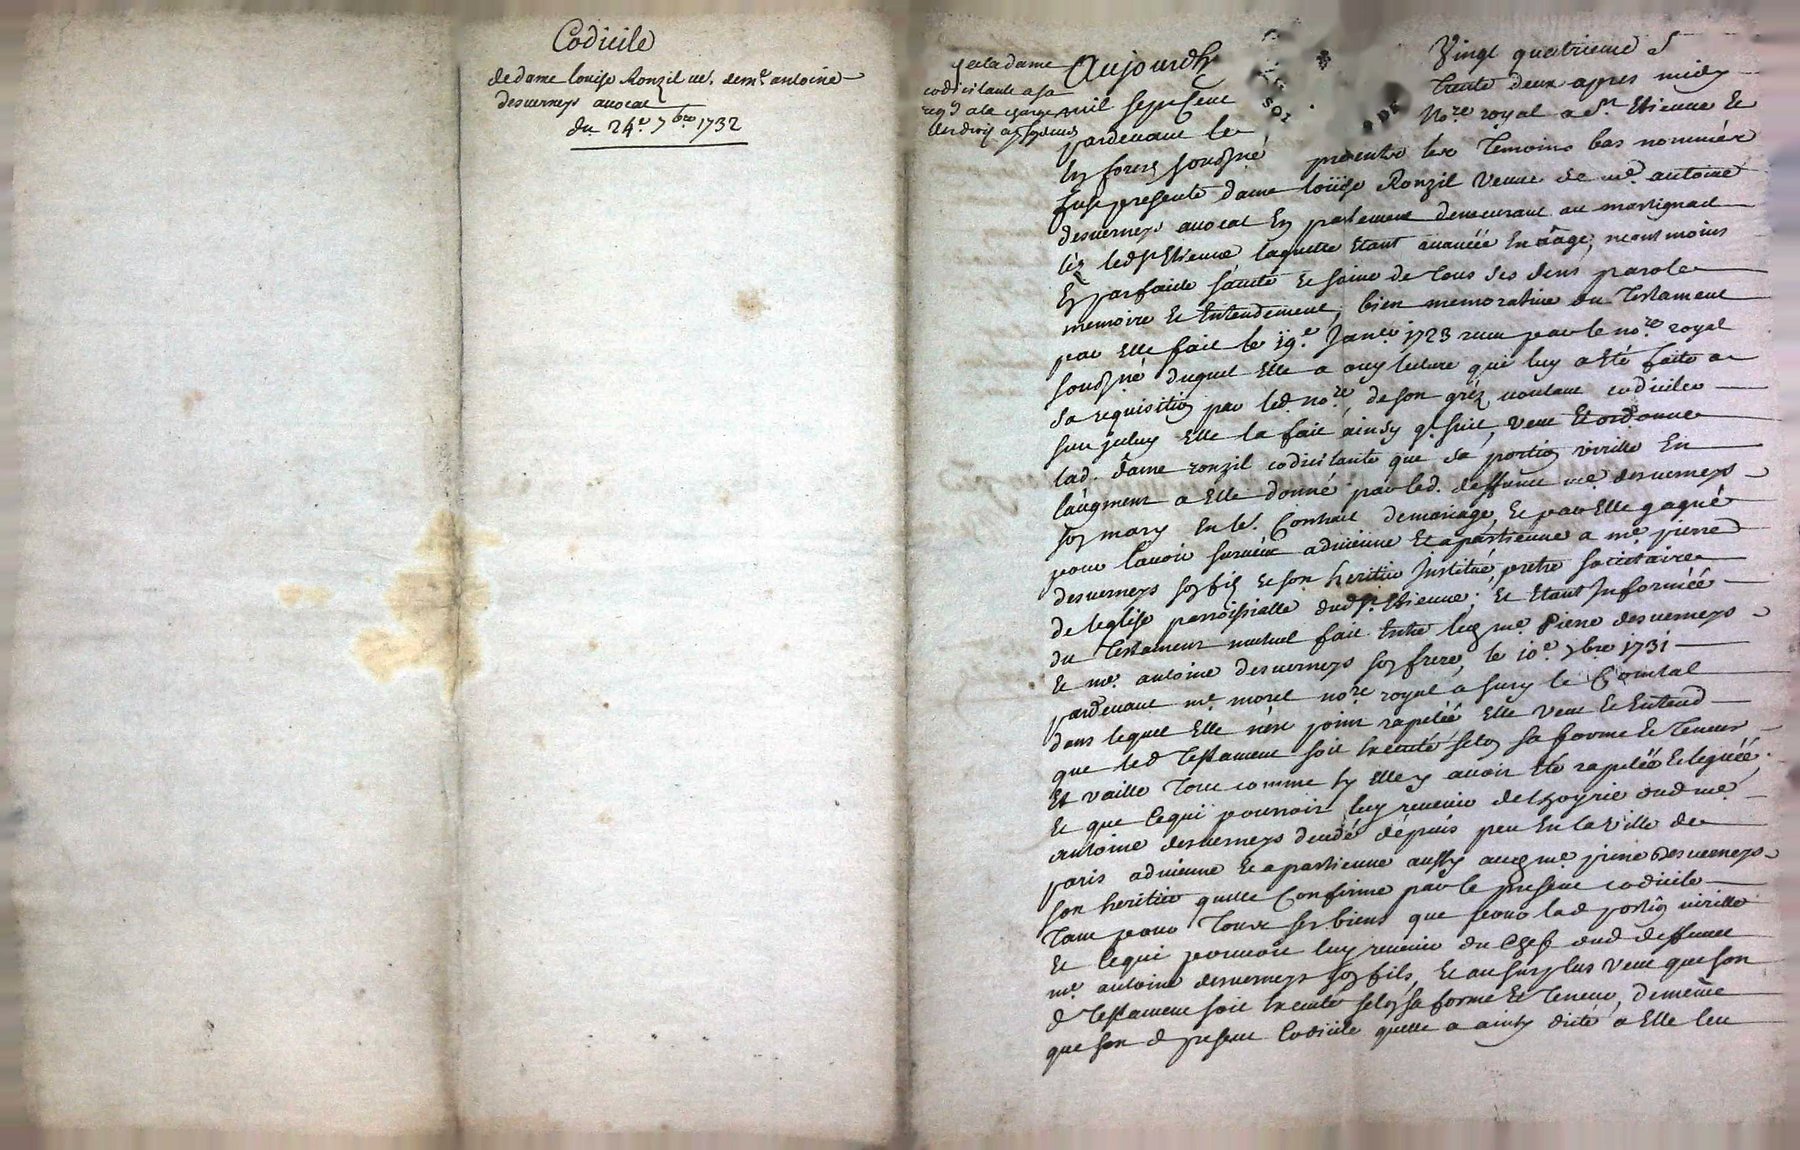 Codicile
de dame louise Ronzil ve. de me. antoine
desverneys avocat
du 24e. 7bre 1732
pr ladame
codicilante a sa
reqon a la charge
Aujourdh
Vingt quatrieme S
mil sept cent
trente deux apres midy
pardevant le
Nore royal a St. Etienne Et
En forez sousigné presents les Temoins bas nommés
fust presente dame loüise Ronzil veuve de me. antoine
desverneys avocat En parlement demeurant au martignat
lèz led St Etienne laquelle Etant avancée En aâge, neantmoins
En parfaite santé Et saine de tous ses sens, parole
memoire Et Entendement, bien memorative du Testament
par Elle fait le 19e. Janer 1723 receu par le nore. royal
sousigné duquel Elle a ouy lecture qui luy a été faite a
sa requisition par led. nore. de son gréz voulant codiciler
sur iceluy Elle la fait ainsy q. suit, veut Et ordonne
lad. dame ronzil codicilante que sa portion virille En
laugment a Elle donné par led. deffunt me. desverneys
son mary En le. Contract de mariage, Et par Elle gagné
pour lavoir survécu advienne Et apartienne a me. pierre
desverneys son fils Et son heritier Institué, pretre societaire
de leglise parroissialle dud St. Etienne; Et Etant Informéé
du Testament mutuel fait Entre led me. Pierre desverneys
Et me. antoine desverneys son frere, le 10e. 7bre 1731
pardevant me. morel nore royal a sury le Comtal
dans lequel Elle nest point rapelée Elle veut Et Entend
que led Testament soit Executé selon sa forme Et Teneur
Et vaille Tout comme sy Elle y avoit Eté rapelée Et leguéé
Et que Cequi pourroit luy revenir de lhoyrie dud me.
antoine desverneys decedé dépuis peu En la Ville de
paris advienne Et apartienne aussy aud me. pierre Desverneys
son heritier quelle Confirme par le present codicile
Tant pour Tous ses biens que pour lad portion virille
Et Cequi pourroit luy revenir du Chef dud deffunt
me. antoine desverneys son fils, Et au surplus veut que son
d Testament soit Executé selon sa forme Et Teneur, de meme
que son d present Codicile quelle a ainsy dicté a Elle leu